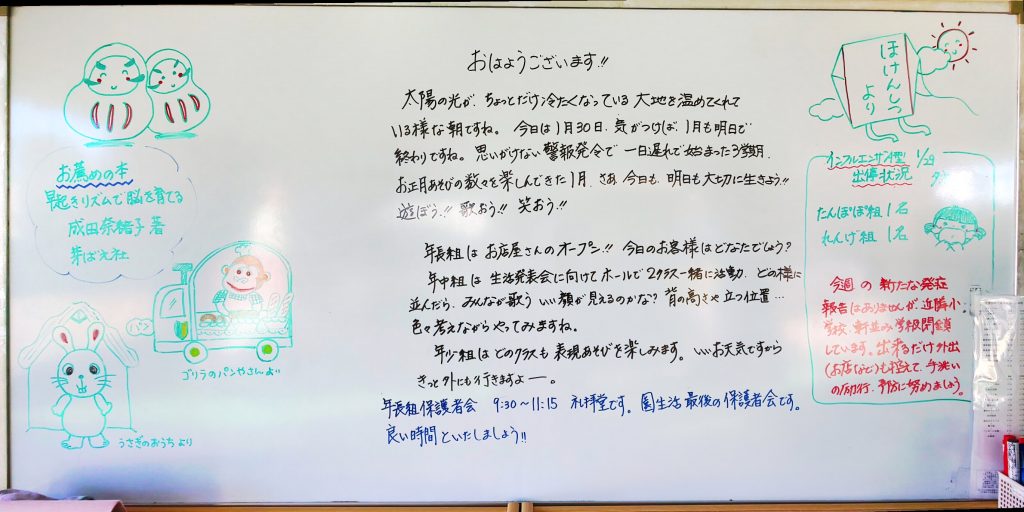 おはようございます!!
太陽の光が、ちょっとだけ冷たくなっている大地を温めてくれて
いる様な朝ですね。今日は1月30日、気がつけば、1月も明日で
終わりですね。思いがけない警報発令で一日遅れで始まった3学期、
お正月あそびの数々を楽しんできた1月、さぁ今日も、明日も大切に生きよう!!
遊ぼう!! 歌おう!! 笑おう!!
年長組は お店屋さんのオープン!! 今日のお客様はどなたでしょう?
年中組は 生活発表会に向けてホールで2クラス一緒に活動、どの様に
並んだら、みんなが歌う いい顔が見えるのかな? 背の高さや立つ位置…
色々考えながらやってみますね。
年少組はどのクラスも表現あそびを楽しみます。いいお天気ですから
きっと外にも行きますよー。
年長組保護者会 9:30〜11:15 礼拝堂です。園生活最後の保護者会です。
良い時間といたしましょう!!
お薦めの本
早起きリズムで脳を育てる
成田奈緒子 著
芽ばえ社
パン
ゴリラのパンやさん
うさぎのおうち より
ほけんしつ
より
インフルエンザ 1/29
出停状況
たんぽぽ組 1名
れんげ組 1名
今週 の 新たな発症
報告はありませんが、近隣小
学校、軒並み学級閉鎖
しています。出来るだけ外出
(お店など)も控えて、手洗い
の励行、予防に努めましょう。